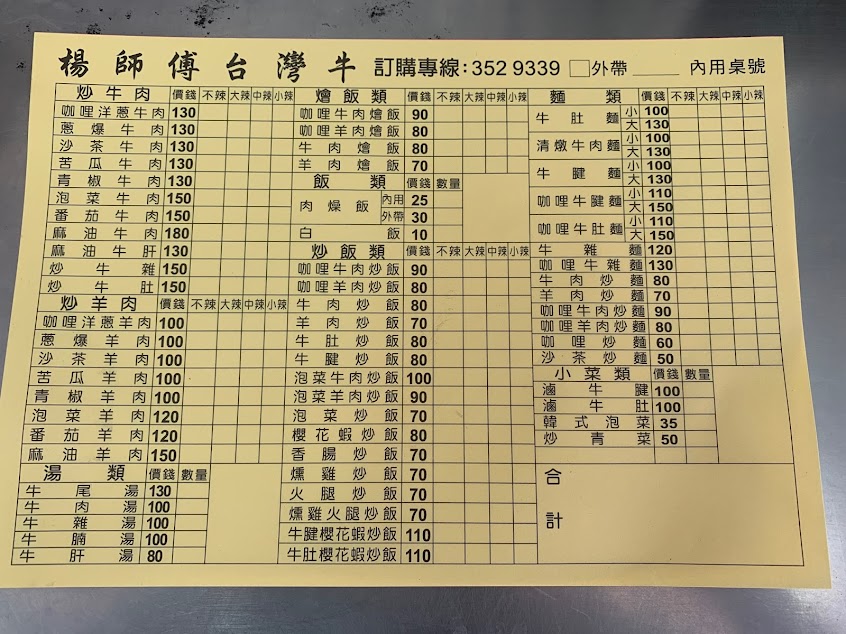 楊師傅台灣牛 訂購專線:352 9339 □外帶____ 內用桌號
炒牛肉 價錢 不辣 大辣 中辣 小辣
咖哩洋蔥牛肉 130
蔥爆牛肉 130
沙茶牛肉 130
苦瓜牛肉 130
青椒牛肉 130
泡菜牛肉 150
番茄牛肉 150
麻油牛肉 180
麻油牛肝 130
炒牛雜 150
炒牛肚 150
炒羊肉 價錢 不辣 大辣 中辣 小辣
咖哩洋蔥羊肉 100
蔥爆羊肉 100
沙茶羊肉 100
苦瓜羊肉 100
青椒羊肉 100
泡菜羊肉 120
番茄羊肉 120
麻油羊肉 150
湯類 價錢 數量
牛尾湯 130
牛肉湯 100
牛雜湯 100
牛腩湯 100
牛肝湯 80
燴飯類 價錢 不辣 大辣 中辣 小辣
咖哩牛肉燴飯 90
咖哩羊肉燴飯 80
牛肉燴飯 80
羊肉燴飯 70
飯類 價錢 數量
肉燥飯 內用 25
外帶 30
白飯 10
炒飯類 價錢 不辣 大辣 中辣 小辣
咖哩牛肉炒飯 90
咖哩羊肉炒飯 80
牛肉炒飯 80
羊肉炒飯 70
牛肚炒飯 80
牛腱炒飯 80
泡菜牛肉炒飯 100
泡菜羊肉炒飯 90
泡菜炒飯 70
櫻花蝦炒飯 80
香腸炒飯 70
燻雞炒飯 70
火腿炒飯 70
燻雞火腿炒飯 70
牛腱櫻花蝦炒飯 110
牛肚櫻花蝦炒飯 110
麵類 價錢 不辣 大辣 中辣 小辣
牛肚麵 小 100
大 130
清燉牛肉麵 小 100
大 130
牛腱麵 小 100
大 130
咖哩牛腱麵 小 110
大 150
咖哩牛肚麵 小 110
大 150
牛雜麵 120
咖哩牛雜麵 130
牛肉炒麵 80
羊肉炒麵 70
咖哩牛肉炒麵 90
咖哩羊肉炒麵 80
咖哩炒麵 60
沙茶炒麵 50
小菜類 價錢 數量
滷牛腱 100
滷牛肚 100
韓式泡菜 35
炒青菜 50
合計